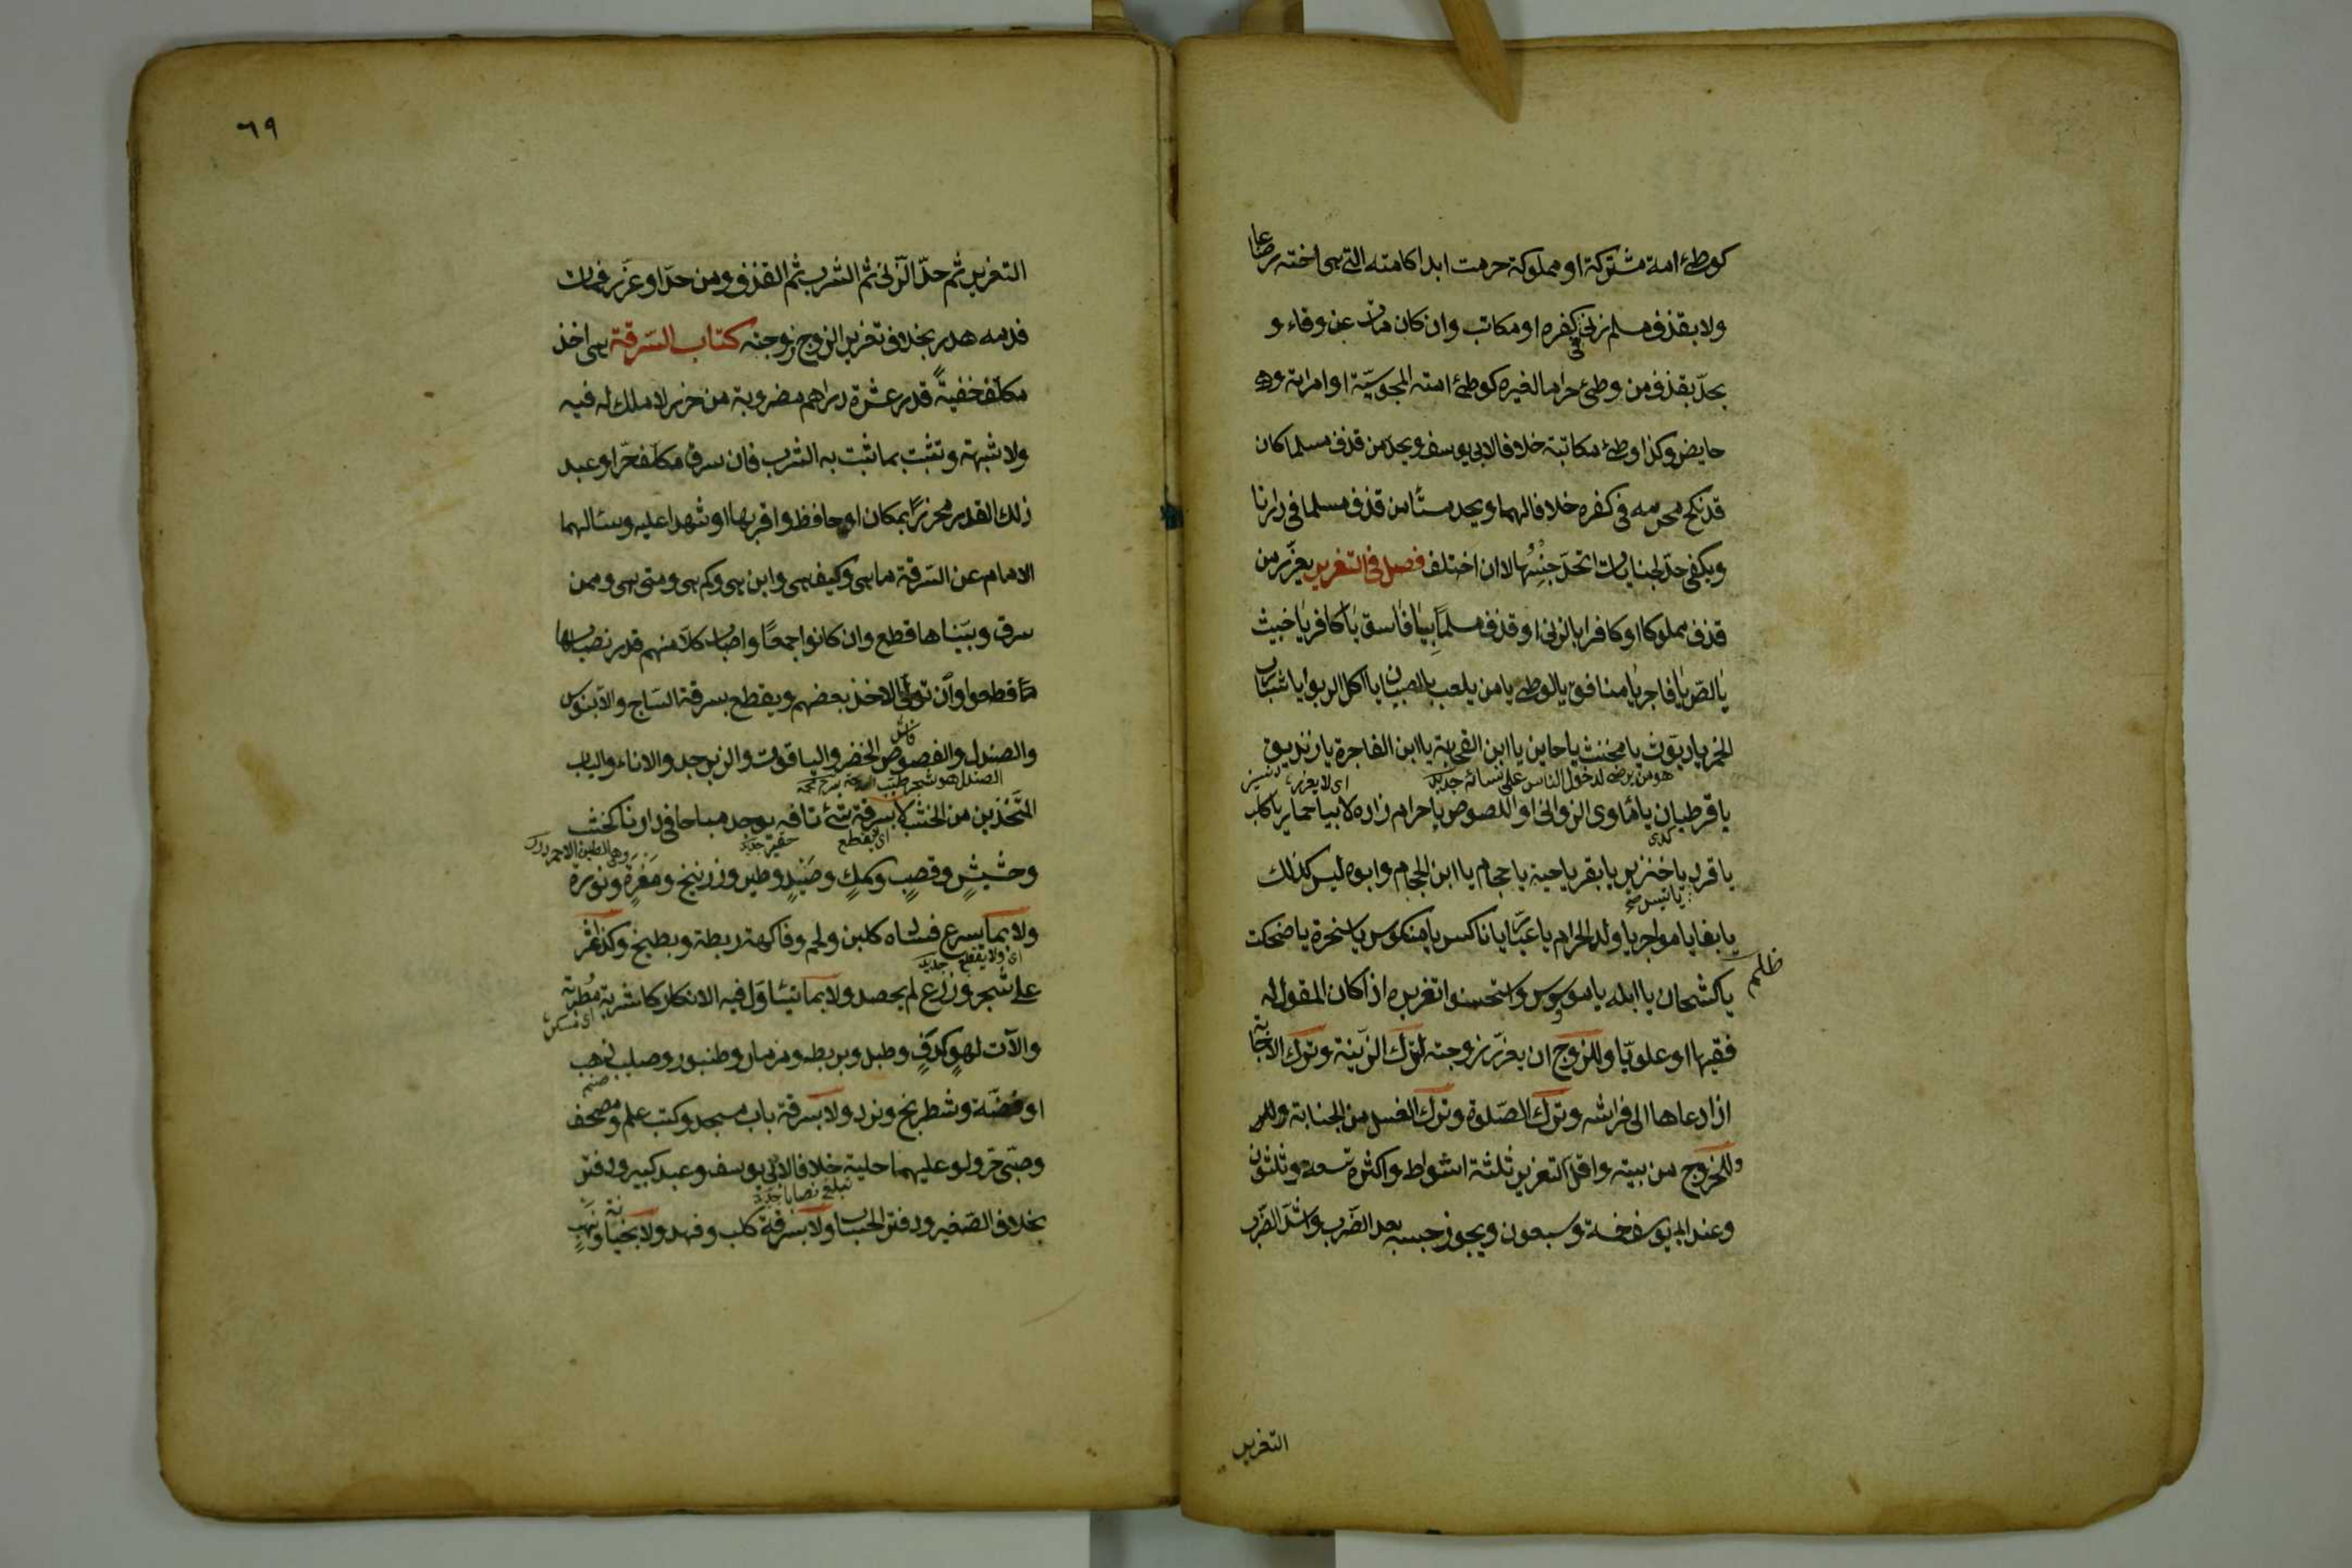 كوطئ امة مشتركة او مملوكة حرمت ابدا كامته التى هى اخته رضاعا
ولا بقذف مسلم زنى فى كفره او مكاتب وان كان مات عن وفاء و
يحدّ بقذف من وطئ حراما لغيره كوطئ امته المجوسيّة او امراته وهى
حايض وكذا وطئ مكاتبة خلافا لابى يوسف ويحد من قذف مسلما كان
قد نكح محرمه فى كفره خلافا لهما ويحد مستأمن قذف مسلما فى دارنا
ويكفى حدّ لجنايات اتحدّ جنسها لا ان اختلف فصل فى التعزير يعزّر من
قذف مملوكا او كافرا بالزنى او قذف مسلما بيا فاسق يا كافر يا خبيث
يا لصّ يا فاجر يا منافق يا لوطى يا من يلعب بالصبيان يا آكل الربوا يا شارب
الخمر يا ديّوث يا مخنث يا خاين يا ابن القحبة يا ابن الفاجرة يا زنديق
هو من يرضى لدخول الناس على نسائه جديد
اى لا يعزر
يا قرطبان يا مأوى الزوانى او اللصوص يا حرام زاده لا بيا حمار يا كلب
يا قرد يا خنزير يا بقر يا حية يا حجام يا ابن الحجام وابوه ليس كذلك
يا تيس صح
يا بغا يا مواجر يا ولد الحرام يا عيّار يا ناكس يا منكوس يا سخرة يا ضحكت
يا كشحان يا ابله يا موسوس واستحسنوا تعزيره اذا كان المقول له
فقيها او علويّا وللزوج ان يعزّر زوجته لترك الزينة وترك الاجابة
اذا دعاها الى فراشه وترك الصّلوة وترك الغسل من الجنابة
وللخروج من بيته واقل التعزير ثلثة اسواط واكثره تسعة وثلثون
وعند ابى يوسف خمسة وسبعون ويجوز حبسه بعد الضّرب واشدّ الضّرب
التعزير
٦٩
التعزير ثم حدّ الزنى ثم الشرب ثم القذف ومن حدّ او عزّر فمات
فدمه هدر بخلاف تعزير الزوج زوجته كتاب السّرقة هى اخذ
مكلف خفية قدر عشرة دراهم مضروبة من حرز لا ملك له فيه
ولا شبهة وتثبت بما ثبت به الشرب فان سرق مكلف حرّ او عبد
ذلك القدر محرزا بمكان او حافظ واقر بها او شهدا عليه وسألهما
الامام عن السّرقة ما هى وكيف هى واين هى وكم هى ومتى هى وممن
سرق وبيّناها قطع وان كانوا جمعا واصاب كلا منهم قدر نصابها
قطعوا وان تولى الاخذ بعضهم ويقطع بسرقة السّاج والابنوس
والصندل والفصوص الخضر والياقوت والزبرجد والاناء والباب
الصندل هو شجر طيب
المتّخذين من الخشب لا بسرقة شئ تافه يوجد مباحا فى دارنا كخشب
اى يقطع
حقير جديد
وهى الطين الاحمر
وحشيش وقصب وسمك وصيد وطين وزرنيخ ومغرة ونورة
ولا بما يسرع فساده كلبن ولحم وفاكهة رطبة وبطيخ وكذا تمر
اى ولا يقطع جديد
على شجر وزرع لم يحصد ولا بما يتأوّل فيه الانكار كاشربة مطربة
اى مسكر
والآت لهو كدف وطبل وبربط ومزمار وطنبور وصليب ذهب
صنم
او فضّة وشطرنج ونرد ولا بسرقة باب مسجد وكتب علم ومصحف
وصبّى حرّ ولو عليهما حلية خلافا لابى يوسف وعبد كبير ودفتر
تبلغ نصابا جديد
بخلاف الصّغير ودفتر الحساب ولا بسرقة كلب وفهد ولا بخيانة ونهب